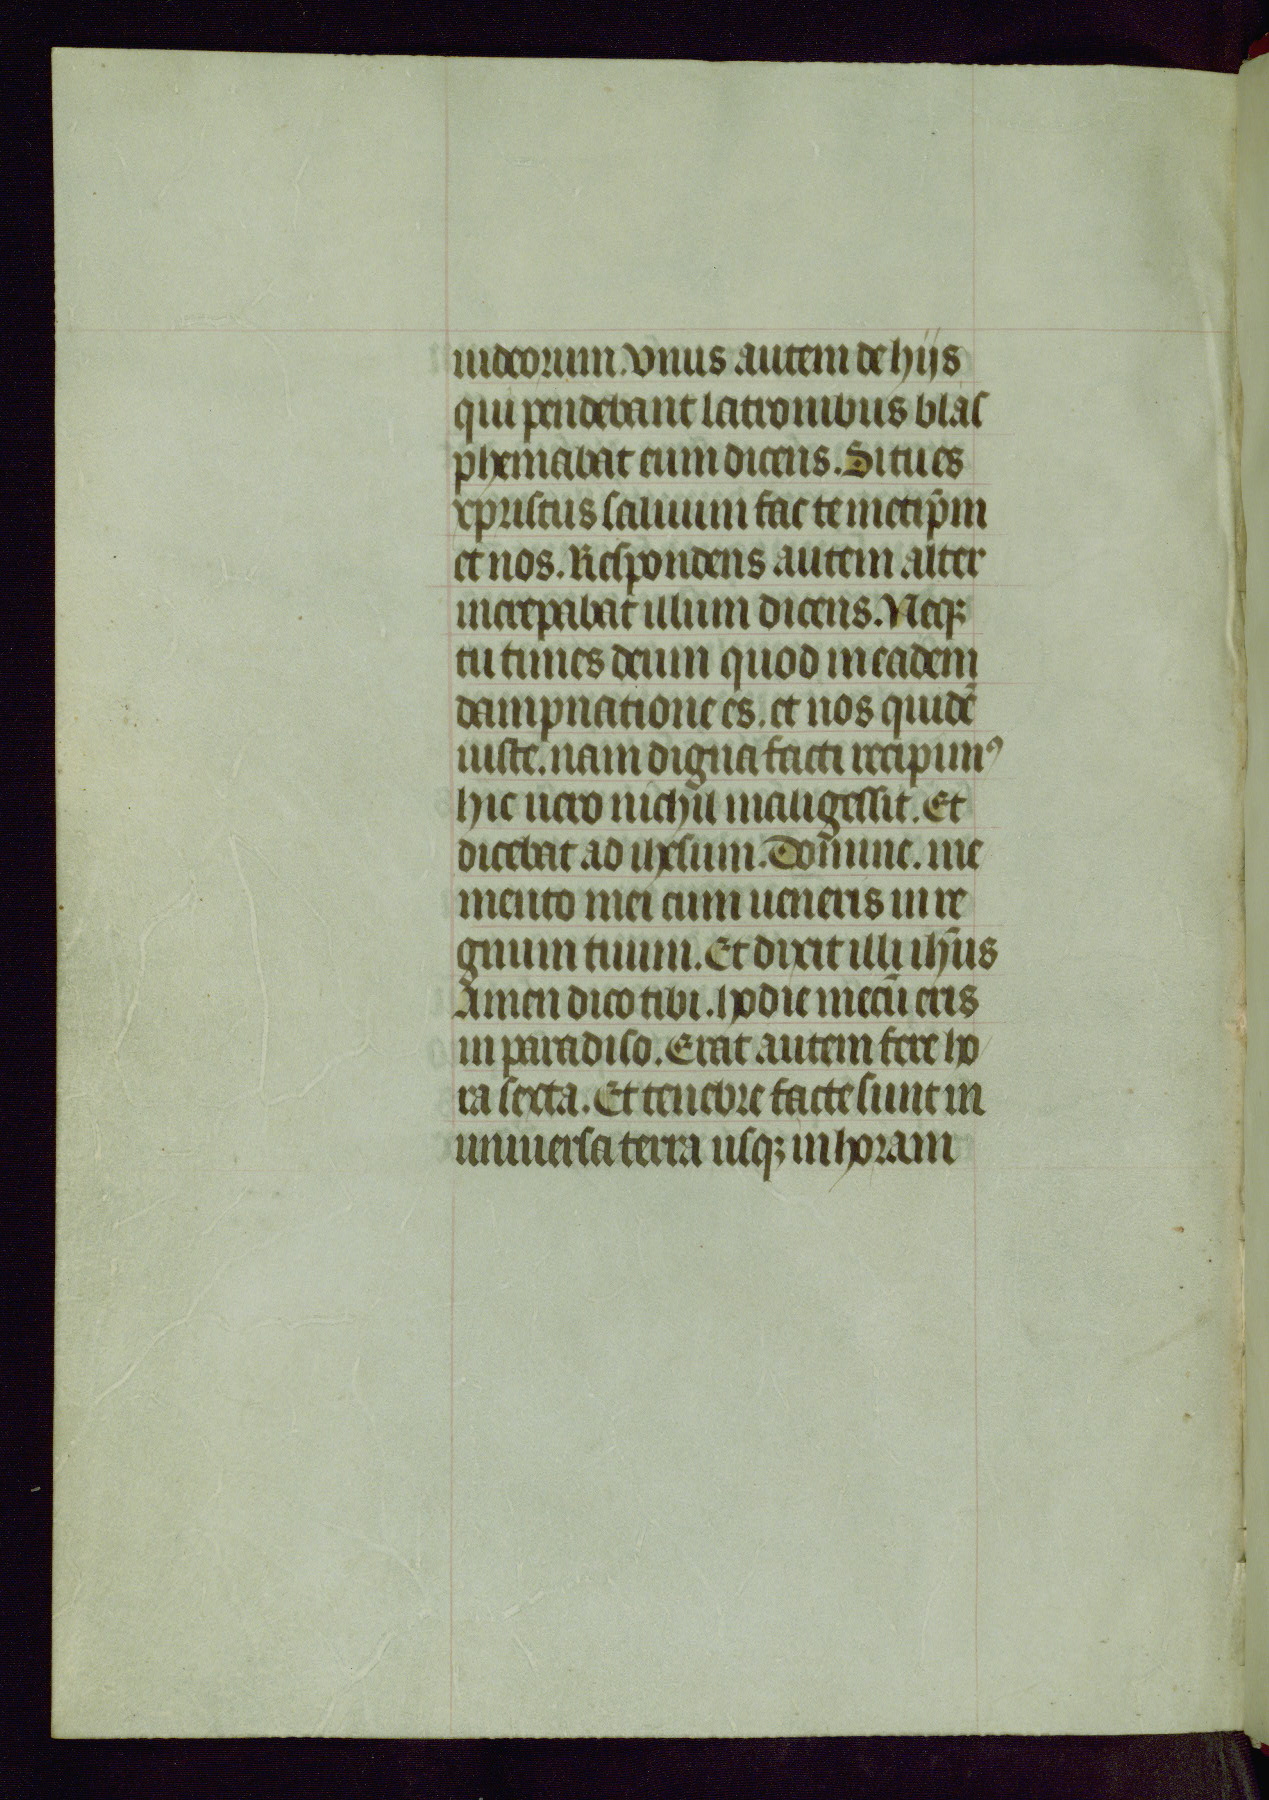 iudeorum. Vnus autem de hijs
qui pendebant latronibus blas
phemabat eum dicens. Si tu es
xpristus saluum fac temetip̄m
et nos. Respondens autem alter
increpabat illum dicens. Neqꝫ
tu times deum quod in eadem
dampnatione es. et nos quidē
iuste. nam digna factis recipimꝰ
hic uero nichil mali gessit. Et
dicebat ad ihesum. Domine. me
mento mei cum ueneris in re
gnum tuum. Et dixit illi ihūs
Amen dico tibi. hodie mecū eris
in paradiso. Erat autem fere ho
ra sexta. Et tenebre facte sunt in
uniuersa terra usqꝫ in horam